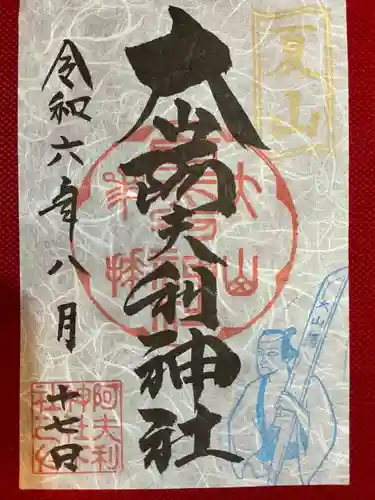 夏山
大山阿夫利神社
令和六年八月十七日
大山
阿夫利
神社本
社之印